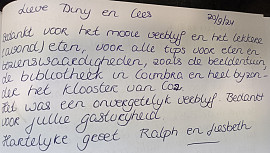 Lieve Diny en Cees
20/9/24
Bedankt voor het mooie verblijf en het lekkere
(avond) eten, voor alle tips voor eten en
bezienswaardigheden, zoals de beeldentuin,
de bibliotheek in Coimbra en heel byzon-
der het klooster van
Het was een onvergetelyk verblyf. Bedankt
voor jullie gastvryheid.
Hartelyke groet Ralph en Liesbeth